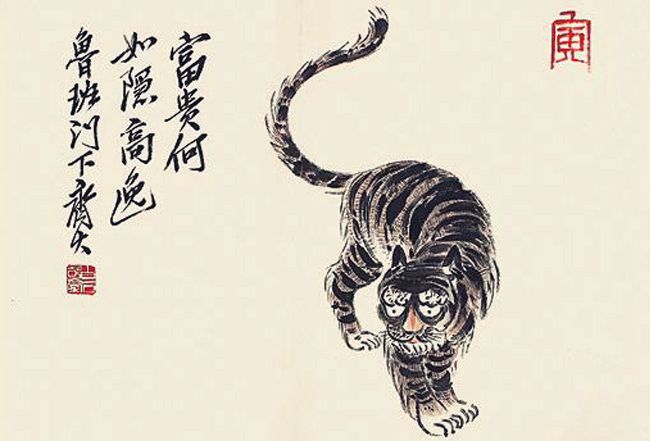 寅
富贵何
如隐高逸
鲁班门下齊大